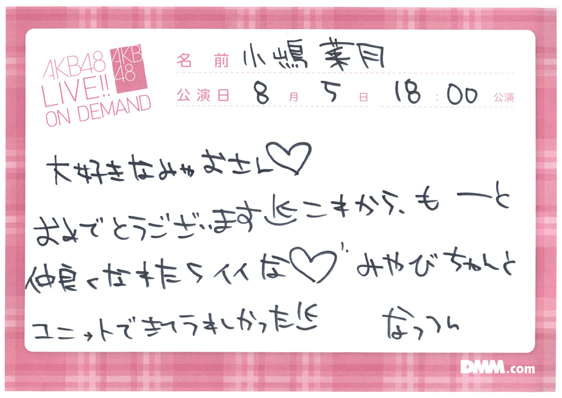 AKB48
LIVE!!
ON DEMAND
AKB
48
名前 小嶋菜月
公演日 8月5日 18:00 公演
大好きなみゃおさん♡
おめでとうございます これから、もーっと
仲良くなれたらイイな♡ みやびちゃんと
ユニットできてうれしかった なっつん
DMM.com